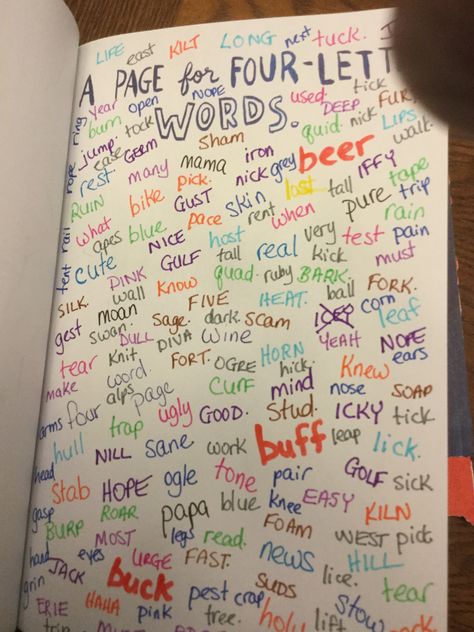 LIFE east KILT LONG next tuck.
A PAGE for FOUR-LETT
WORDS.
ring year open NOPE used. tick
burn tock DEEP FUR
jump. GERM Sham quid. nick LIPS
rope ease many mama iron beer walk.
rest pick. nick grey IFFY tape
RUIN bike GUST skin last tall pure trip
what pace rent when rain
rail apes blue NICE host very test pain
tent cute GULF tall real kick must
PINK quad. ruby BARK.
SILK. wall know HEAT. ball FORK.
gest moan FIVE corn leaf
swan. sage. dark. scam
DULL DIVA wine YEAH NOPE
tear knit FORT. HORN ears
make word OGRE hick. Knew
alps page CUFF mind nose SOAP
arms four ugly GOOD. Stud. ICKY tick
trap
hull NILL sane work buff leap lick.
head
Stab HOPE ogle tone pair GOLF sick
gasp papa blue knee EASY KILN
BURP ROAR
MOST legs read. FOAM WEST pict.
hand eyes URGE FAST. news HILL
grin JACK buck SUDS lice. tear
ERIE HAHA pink pest crap Stow
tree. holy lift work
trip